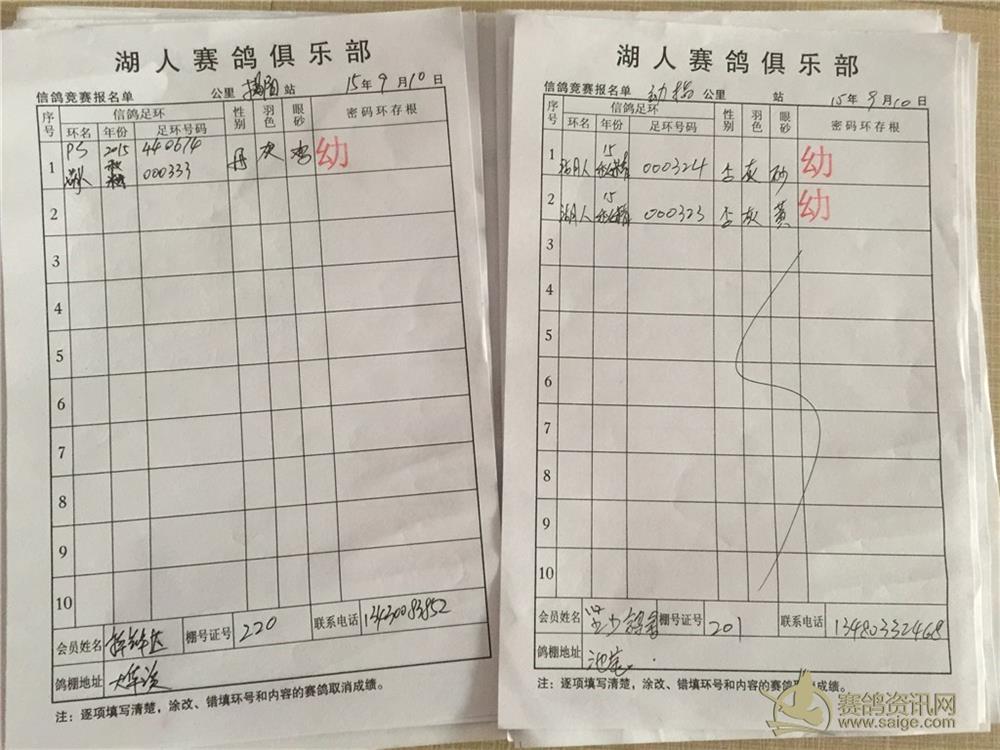 湖人赛鸽俱乐部
信鸽竞赛报名单 公里 站 15年9月10日
序号 信鸽足环 性别 羽色 眼砂 密码环存根
环名 年份 足环号码
1 PS 2015 440674 灰 幼
000333
2
3
4
5
6
7
8
9
10
会员姓名 棚号证号 220 联系电话 13430083852
鸽棚地址
注：逐项填写清楚，涂改、错填环号和内容的赛鸽取消成绩。
湖人赛鸽俱乐部
信鸽竞赛报名单 公里 站 15年9月10日
序号 信鸽足环 性别 羽色 眼砂 密码环存根
环名 年份 足环号码
1 湖人 15 000324 灰 砂 幼
2 湖人 15 000323 灰 黄 幼
3
4
5
6
7
8
9
10
会员姓名 棚号证号 201 联系电话 13480332468
鸽棚地址
注：逐项填写清楚，涂改、错填环号和内容的赛鸽取消成绩。
赛鸽资讯网
www.saige.com